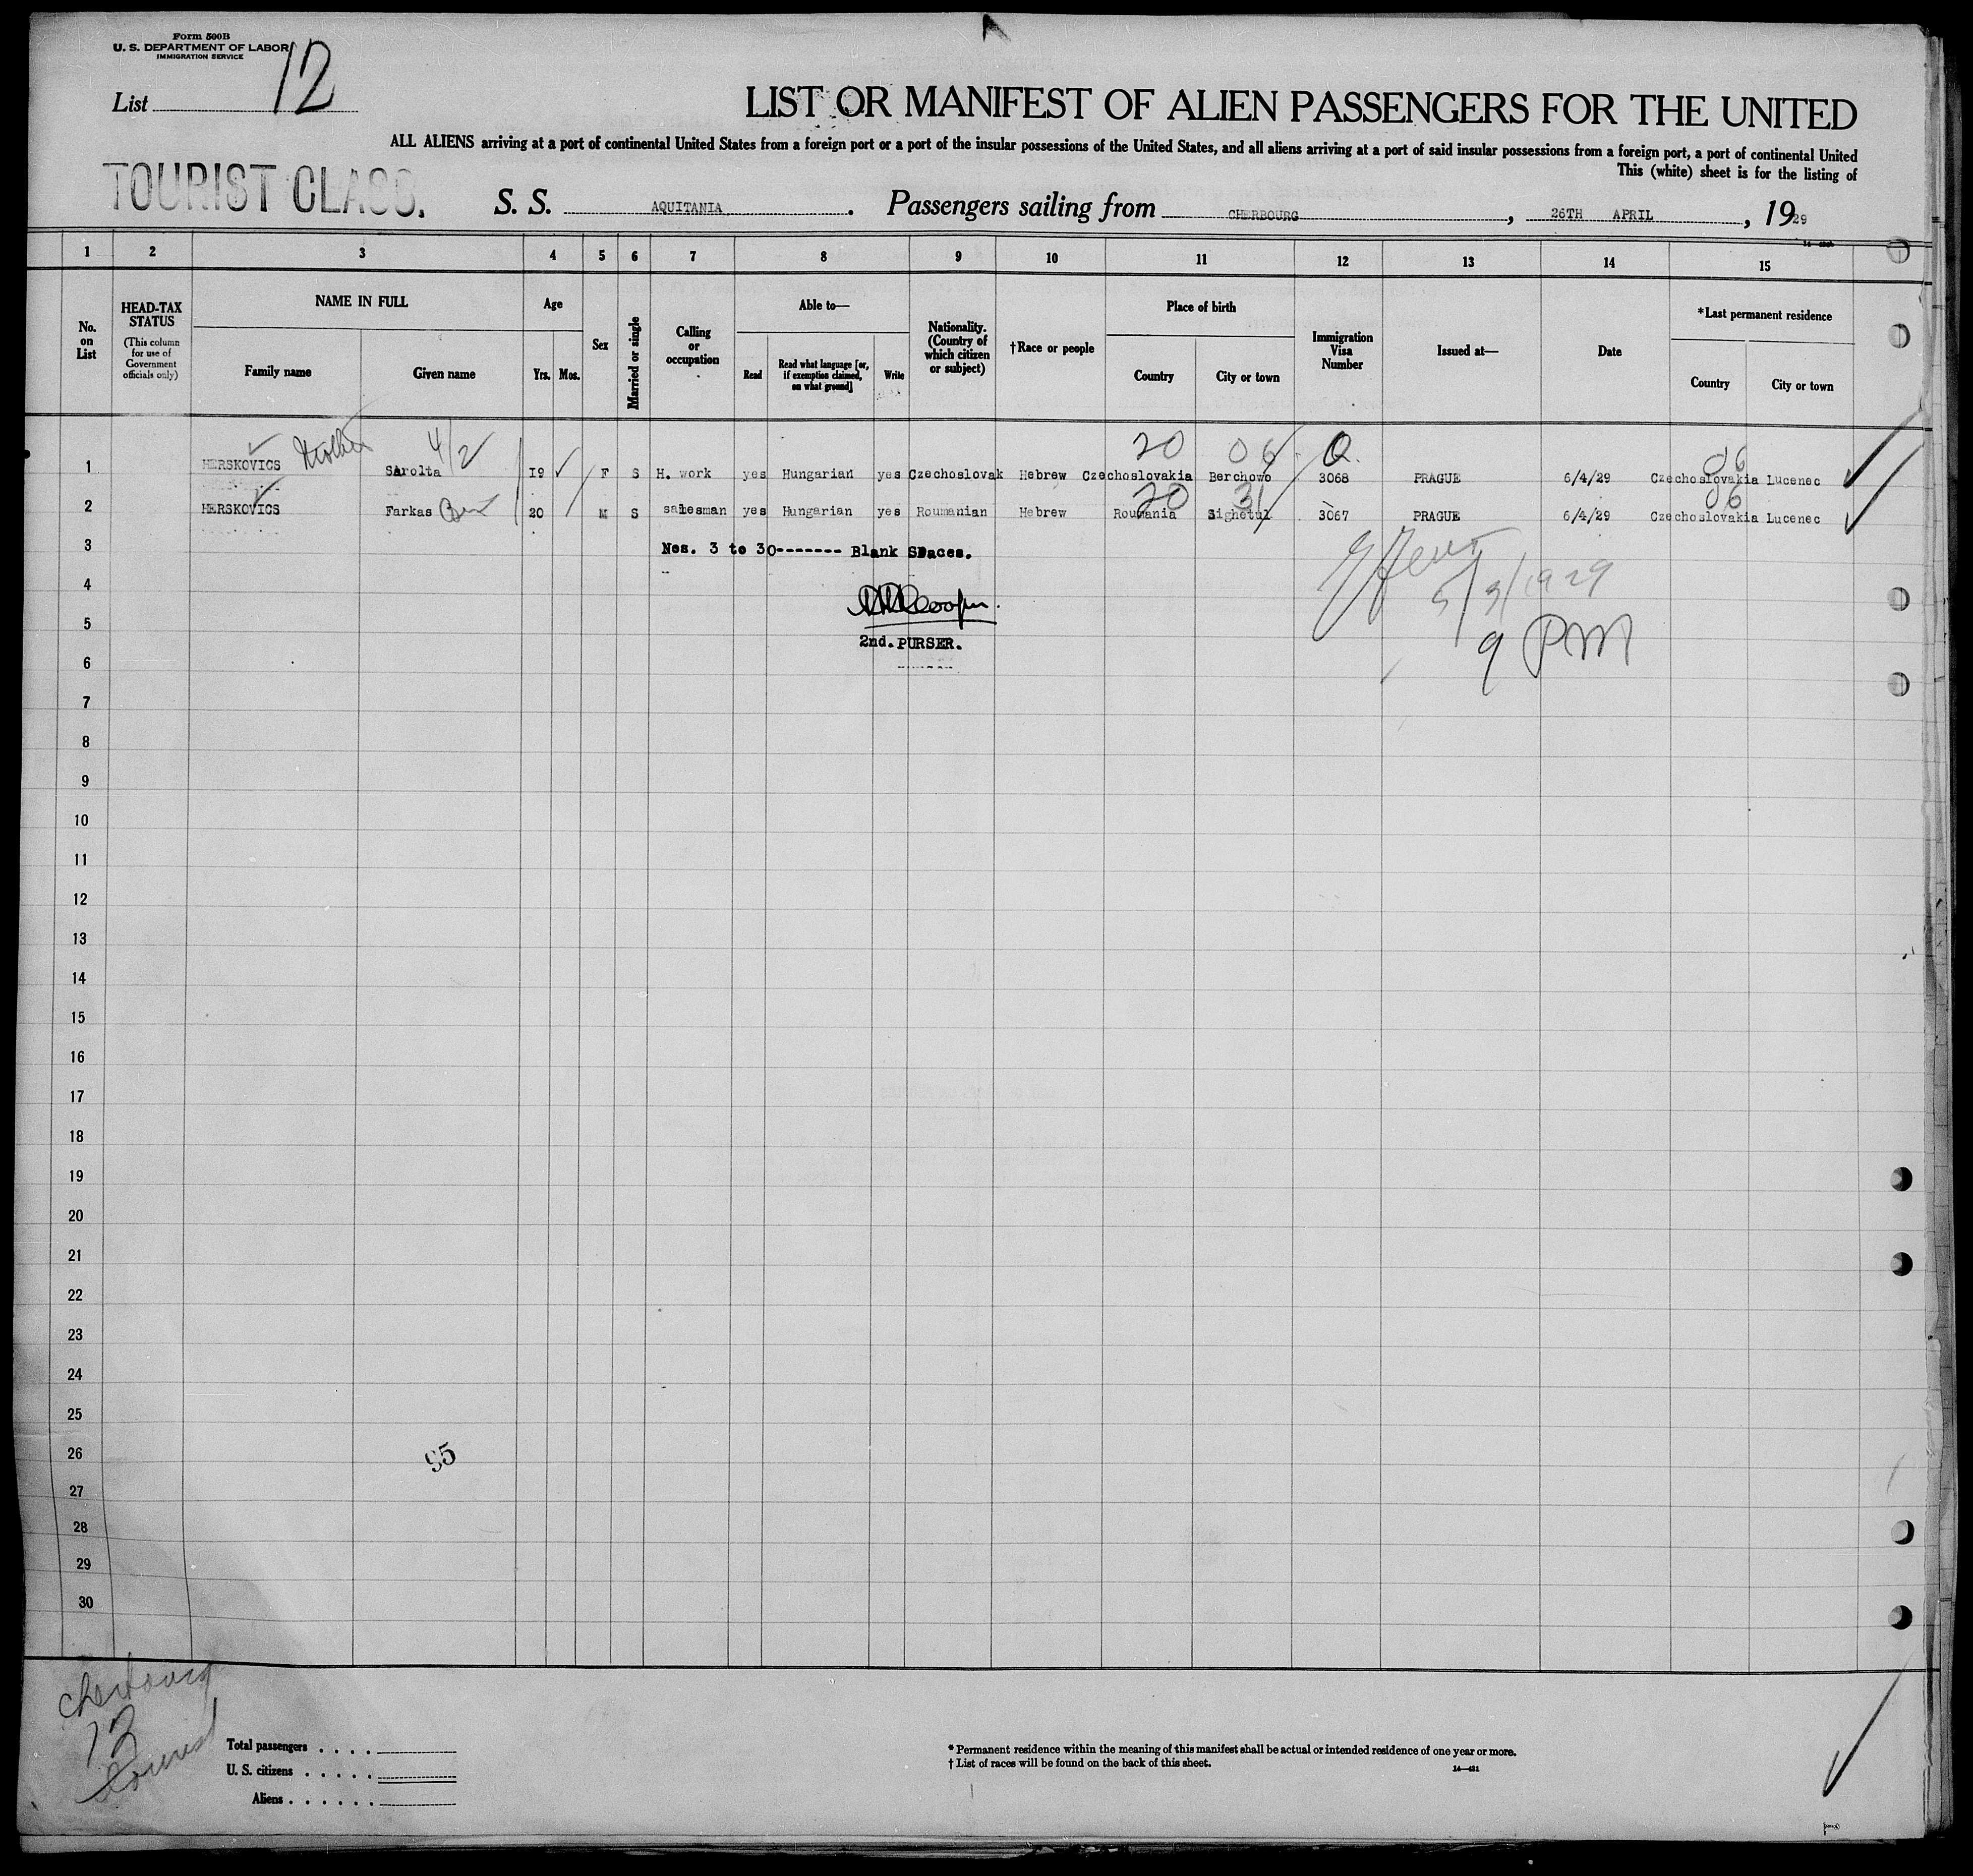 Form 500B
U. S. DEPARTMENT OF LABOR
IMMIGRATION SERVICE
List 12
LIST OR MANIFEST OF ALIEN PASSENGERS FOR THE UNITED
ALL ALIENS arriving at a port of continental United States from a foreign port or a port of the insular possessions of the United States, and all aliens arriving at a port of said insular possessions from a foreign port, a port of continental United
This (white) sheet is for the listing of
TOURIST CLASS.
S. S. AQUITANIA. Passengers sailing from CHERBOURG, 26TH APRIL, 1929
1 2 3 4 5 6 7 8 9 10 11 12 13 14 15
No. on List
HEAD-TAX STATUS
(This column for use of Government officials only)
NAME IN FULL
Family name
Given name
Age
Yrs.
Mos.
Sex
Married or single
Calling or occupation
Able to—
Read
Read what language [or, if exemption claimed, on what ground]
Write
Nationality. (Country of which citizen or subject)
†Race or people
Place of birth
Country
City or town
Immigration Visa Number
Issued at—
Date
*Last permanent residence
Country
City or town
4/2
20 06 Q. 06
1 HERSKOVICS Sarolta 19 F S H. work yes Hungarian yes Czechoslovak Hebrew Czechoslovakia Berchowo 3068 PRAGUE 6/4/29 Czechoslovakia Lucenec
20 31 06
2 HERSKOVICS Farkas 20 M S salesman yes Hungarian yes Roumanian Hebrew Roumania Sighetul 3067 PRAGUE 6/4/29 Czechoslovakia Lucenec
3 Nos. 3 to 30------- Blank Spaces.
4
5/3/1929
5
2nd. PURSER.
9 PM
6
7
8
9
10
11
12
13
14
15
16
17
18
19
20
21
22
23
24
25
26
95
27
28
29
30
Cherbourg
13
Tourist
Total passengers . . . .
U. S. citizens . . . . .
Aliens . . . . . .
* Permanent residence within the meaning of this manifest shall be actual or intended residence of one year or more.
† List of races will be found on the back of this sheet.
14—421